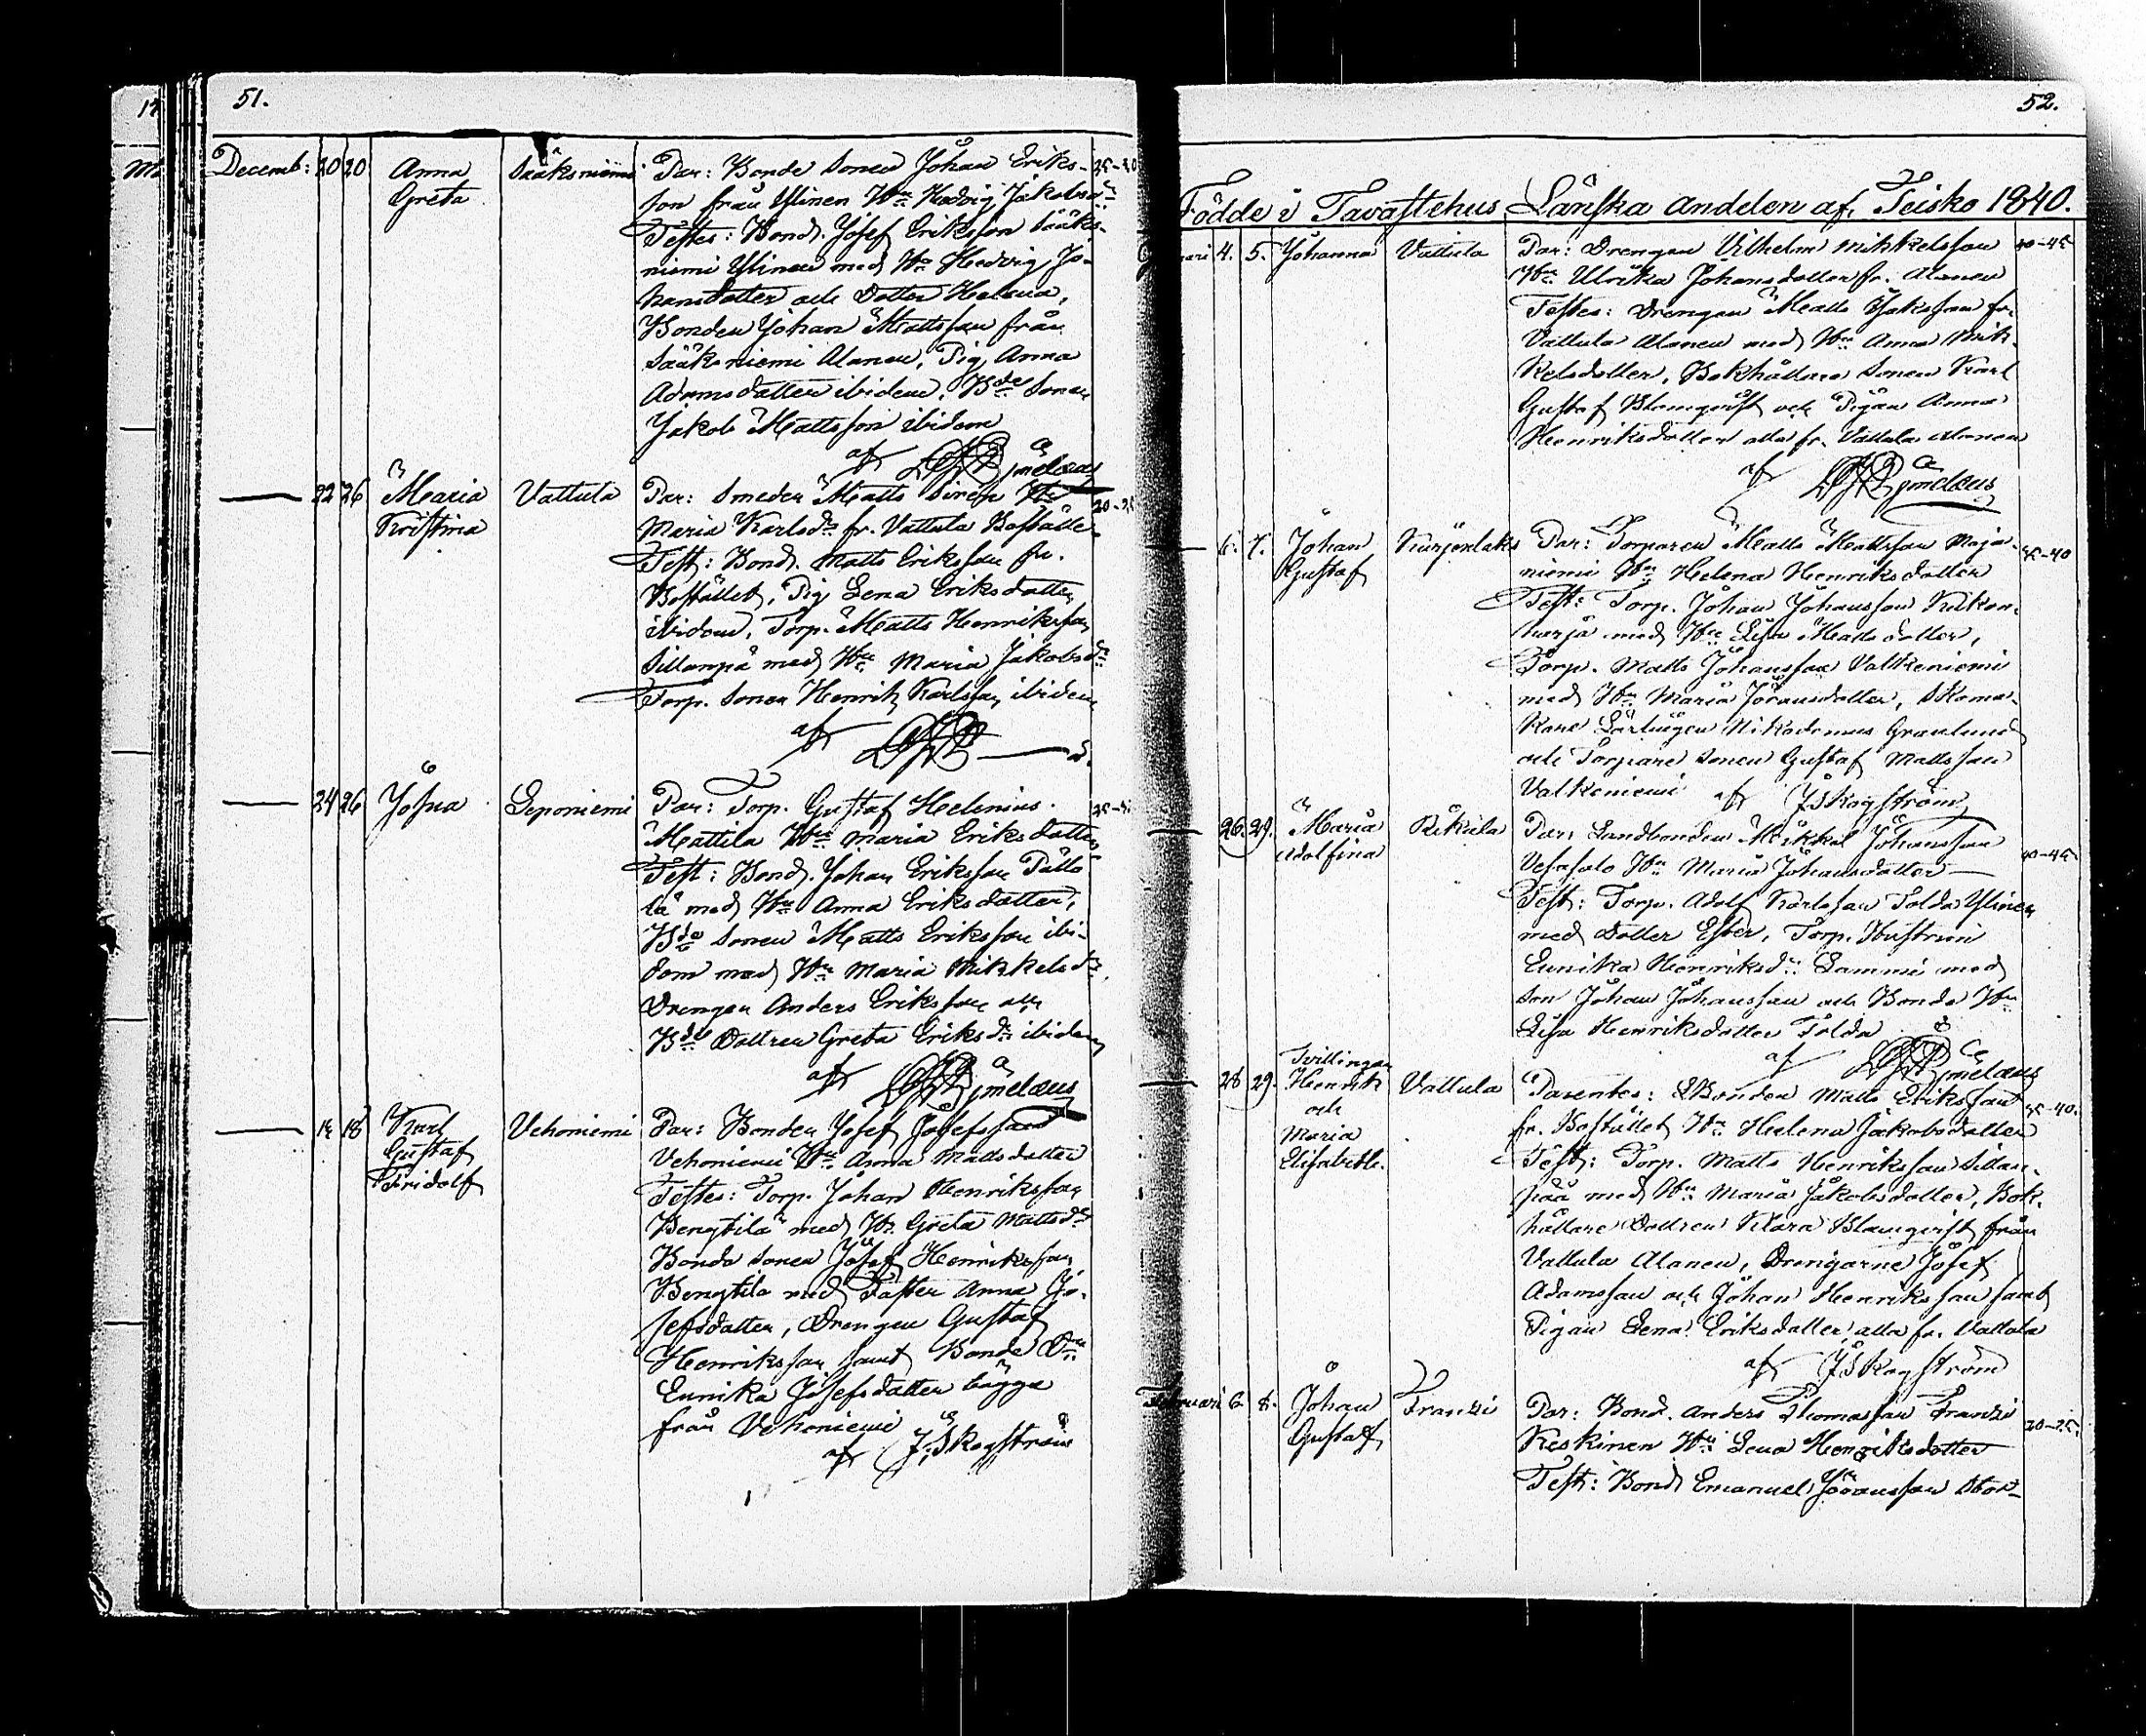 51.
Decemb: 20 20 Anna Sääksniemi Par: Bonde Sonen Johan Eriks- 25-30
Greta son från Ylinen Hu Hedvig Jakobsdr
Testes: Bond. Josef Eriksson Sääks-
niemi Ylinen med Hu Hedvig Jo-
hansdotter och Dotter Helena,
Bonden Johan Mattsson från
Sääksniemi Alanen, Pig. Anna
Adamsdotter ibidem, Bde Sonen
Jakob Mattsson ibidem
af
22 26 Maria Vattula Par: Smeden Matts Siren Hu 20-25
Kristina Maria Karlsdr fr. Vattula Boställe
Test: Bond. Matts Eriksson fr.
Bostället, Pig Lena Eriksdotter
ibidem, Torp. Matts Henriksson
Sillanpä med Hu Maria Jakobsdr
Torp. Sonen Henrik Karlsson ibidem
af
24 26 Josua Leponiemi Par: Torp. Gustaf Helenius
Mattila Hu Maria Eriksdotter
Test: Bond. Johan Eriksson Pätto
lä med Hu Anna Eriksdotter,
Bde Sonen Matts Eriksson ibi-
dem med Hu Maria Mikkelsdr
Drengen Anders Eriksson och
Bde Dottren Greta Eriksdr ibidem
af
18 Karl Vehoniemi Par: Bonden Josef Josefsson
Gustaf Vehoniemi Hu Anna Mattsdotter
Fridolf Testes: Torp. Johan Henriksson
Bengtilä med Hu Greta Mattsdr
Bonde Sonen Josef Henriksson
Bengtilä med Faster Anna Jo-
sefsdotter, Drengen Gustaf
Henriksson samt Bonde Dr
Eunika Josefsdotter bägge
från Vehoniemi
af J. Skogström
52.
Födde i Tavastehus Länska andelen af Teisko 1840.
4. 5. Johanna Vattula Par: Drengen Vilhelm Mikkelsson 40-45
Hu Ulrika Johansdotter fr. Alanen
Testes: Drengen Matts Isaksson fr.
Vattula Alanen med Hu Anna Mik-
kelsdotter, Bokhållare Sonen Karl
Gustaf Blomqvist och Pigan Anna
Henriksdotter alla fr. Vattula Alanen
af
6. 7. Johan Kurjenlaks Par: Torparen Matts Mattsson Maja- 35-40
Gustaf niemi Hu Helena Henriksdotter
Test: Torp. Johan Johansson
med Hu Lisa Mattsdotter,
Torp. Matts Johansson Valkeniemi
med Hu Maria Jöransdotter, Skoma-
kare Lärlingen Nikodemus Granlund
och Torpare Sonen Gustaf Mattsson
Valkeniemi af J. Skogström
26 29. Maria Rikala Par: Landbonden Mikkel Johansson 40-45
Adolfina Vesasalo Hu Maria Johansdotter
Test: Torp. Adolf Karlsson Tolda Ylinen
med Dotter Ester, Torp. Hustrun
Eunika Henriksdr Lammi med
Son Johan Johansson och Bonde Hu
Lisa Henriksdotter Tolda
af
Tvillingar
28 29. Henrik Vattula Parentes: Bonden Matts Eriksson 35-40.
och fr. Bostället Hu Helena Jakobsdotter
Maria Test: Torp. Matts Henriksson Sillan-
Elisabeth. pää med Hu Maria Jakobsdotter, Bok-
hållare Dottren Klara Blomqvist från
Vattula Alanen, Drengarne Josef
Adamsson och Johan Henriksson samt
Pigan Lena Eriksdotter alla fr. Vattula
af J. Skogström
Februari 6. 8. Johan Franzi Par: Bond. Anders Thomasson Franzi 20-25.
Gustaf Keskinen Hu Lena Henriksdotter
Test: Bond Emanuel Jöransson Stor-